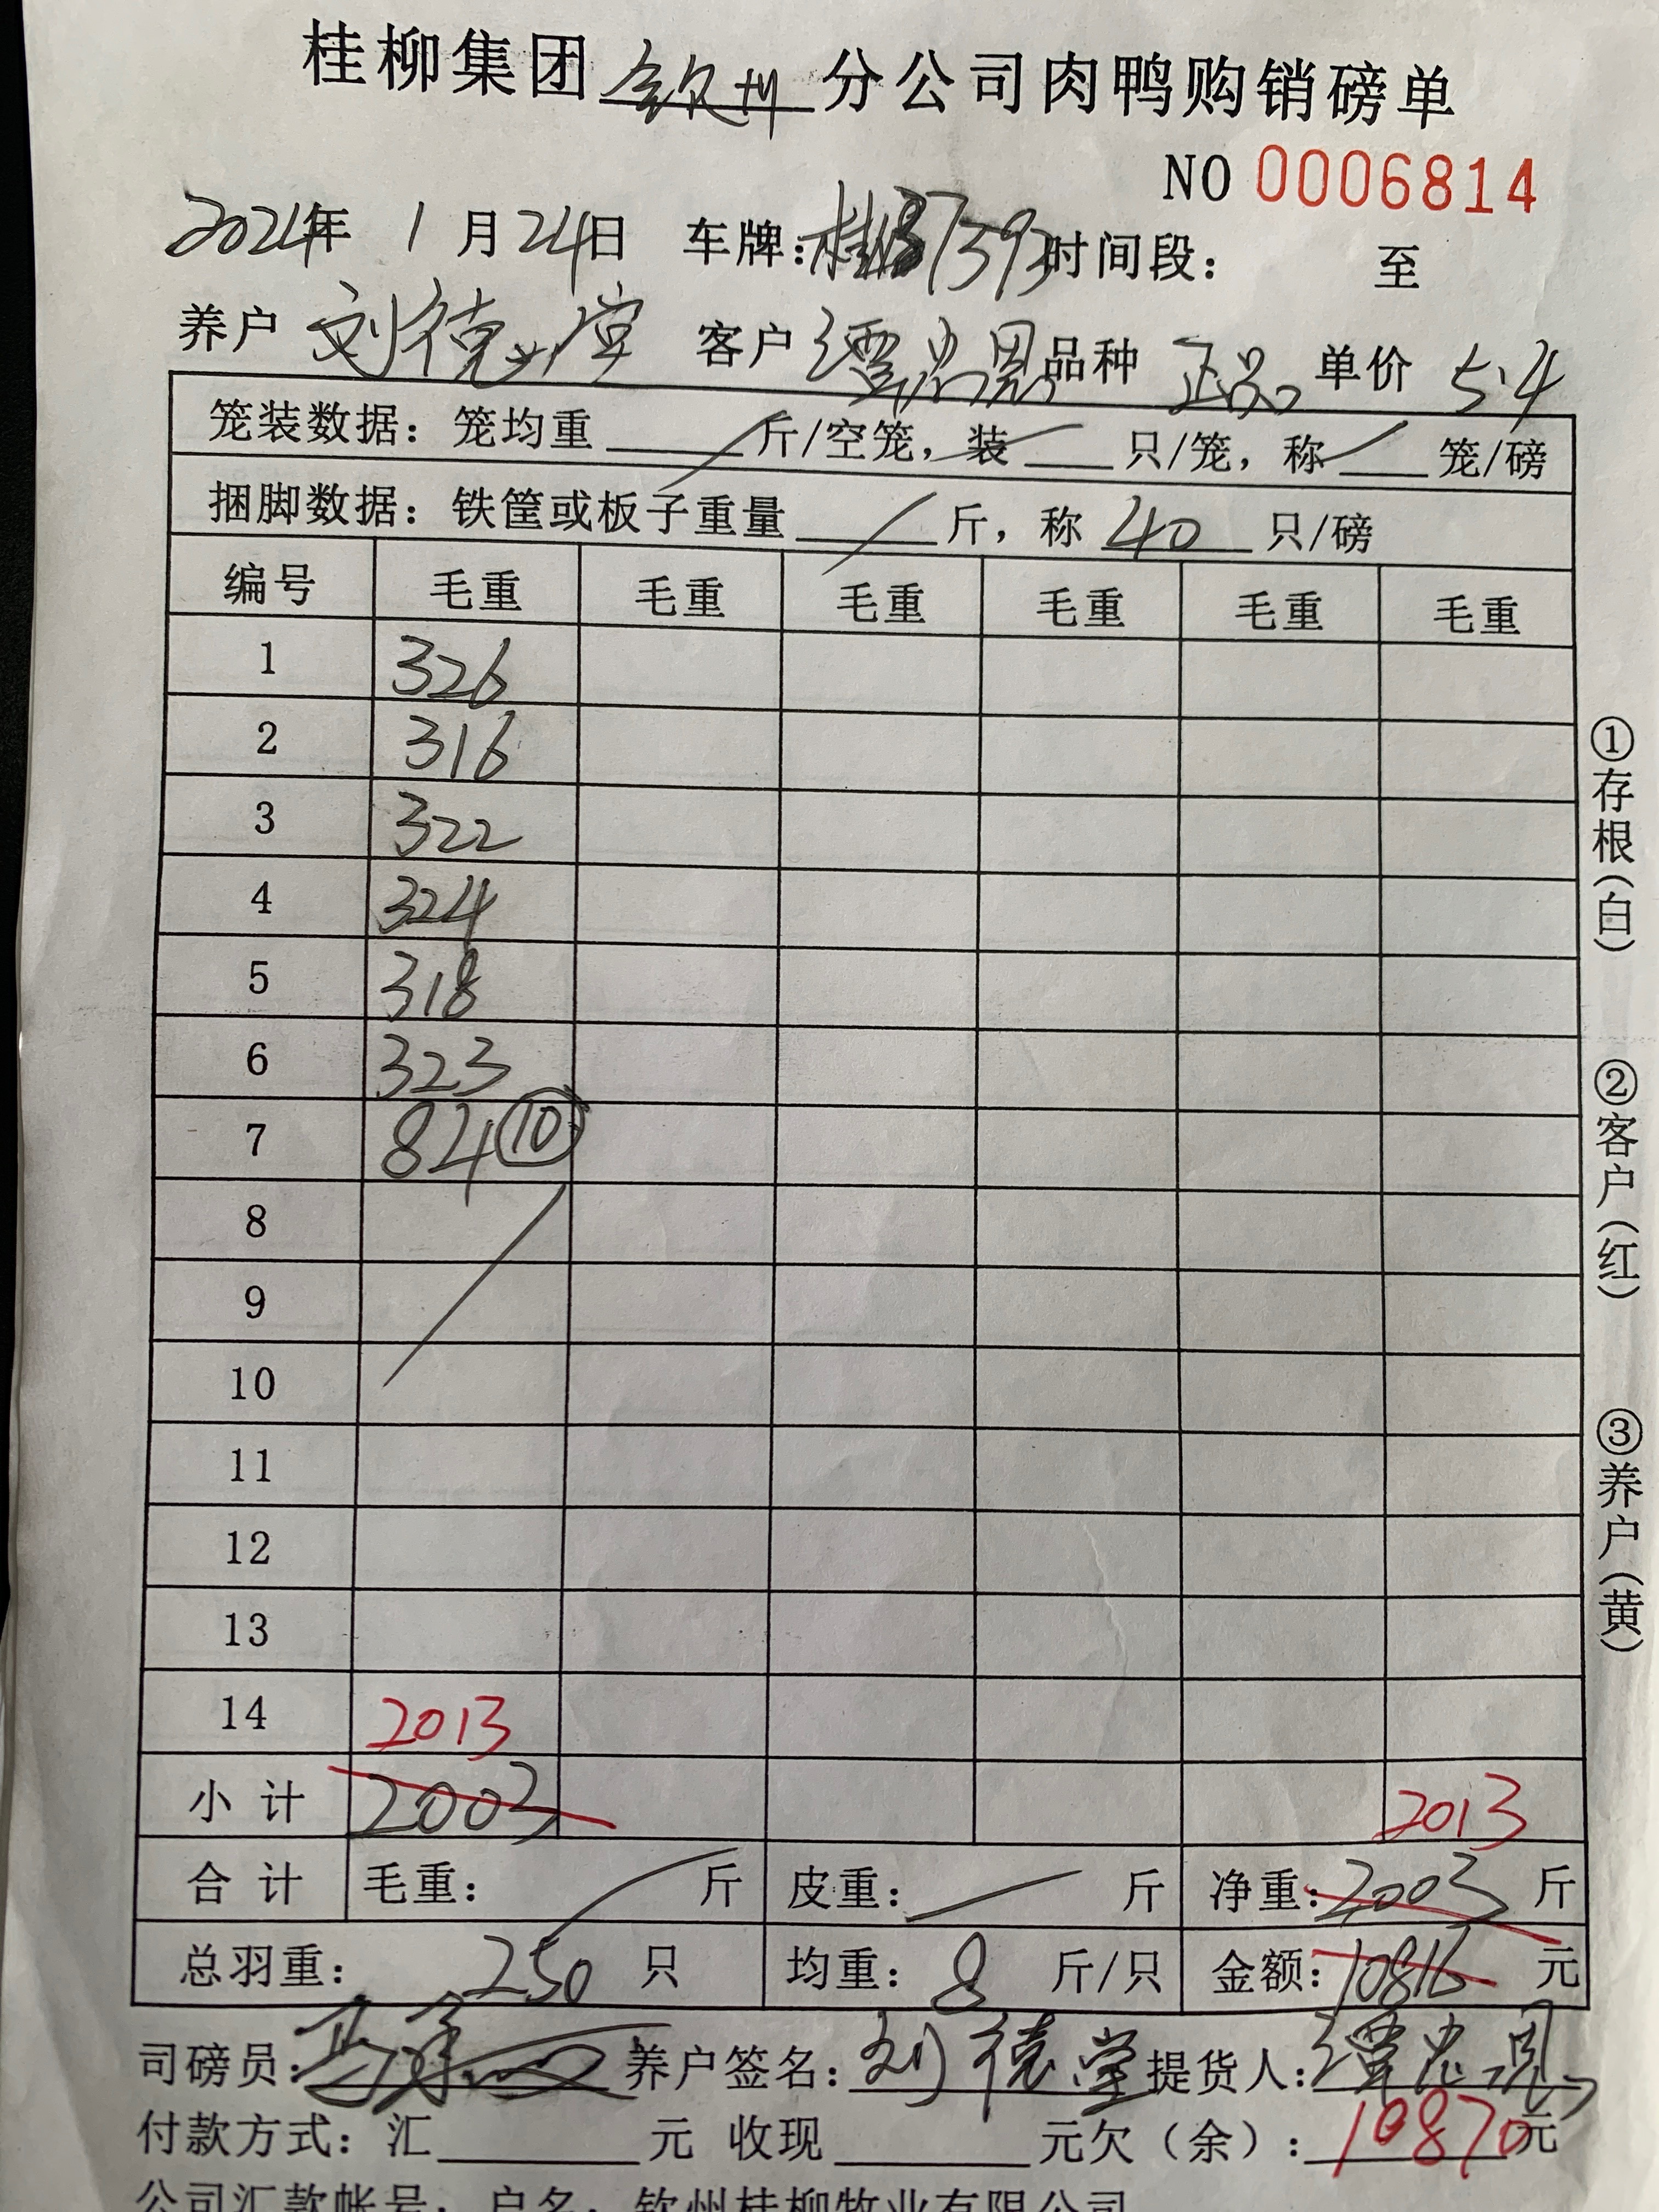 桂柳集团钦州分公司肉鸭购销磅单
NO 0006814
2024年 1月24日 车牌:桂 7393 时间段: 至
养户 刘德堂 客户 谭忠恩 品种 正品 单价 5.4
笼装数据:笼均重 斤/空笼,装 只/笼,称 笼/磅
捆脚数据:铁筐或板子重量 斤,称 40 只/磅
编号 毛重 毛重 毛重 毛重 毛重 毛重
1 326
2 316
3 322
4 324
5 318
6 323
7 84 10
8
9
10
11
12
13
14 2013
小计 2003 2013
合计 毛重: 斤 皮重: 斤 净重:2003斤
总羽重: 250 只 均重: 8 斤/只 金额:10816元
司磅员: 养户签名:刘德堂 提货人:谭忠恩
付款方式:汇 元 收现 元欠(余):10870元
公司汇款帐号:户名:钦州桂柳牧业有限公司
①存根(白)
②客户(红)
③养户(黄)